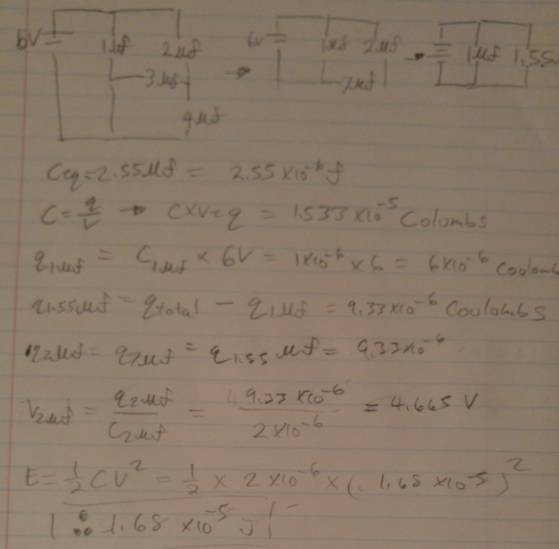 6V 1μf 2μf 3μf 4μf → 6v 1μf 2μf 7μf → 1μf 1.55
Ceq = 2.55μf = 2.55 x10⁻⁶f
C = q/V → CxV = q = 1.533x10⁻⁵ Columbs
q1μf = C1μf x 6V = 1x10⁻⁶ x 6 = 6x10⁻⁶ Coulomb
q1.55μf = qtotal - q1μf = 9.33x10⁻⁶ Coulombs
q2μf = q7μf = q1.55μf = 9.33x10⁻⁶
V2μf = q2μf / C2μf = 9.33 x10⁻⁶ / 2x10⁻⁶ = 4.665 V
E = 1/2 CV² = 1/2 x 2x10⁻⁶ x (1.68 x10⁻⁵)²
∴ 1.68 x10⁻⁵ J